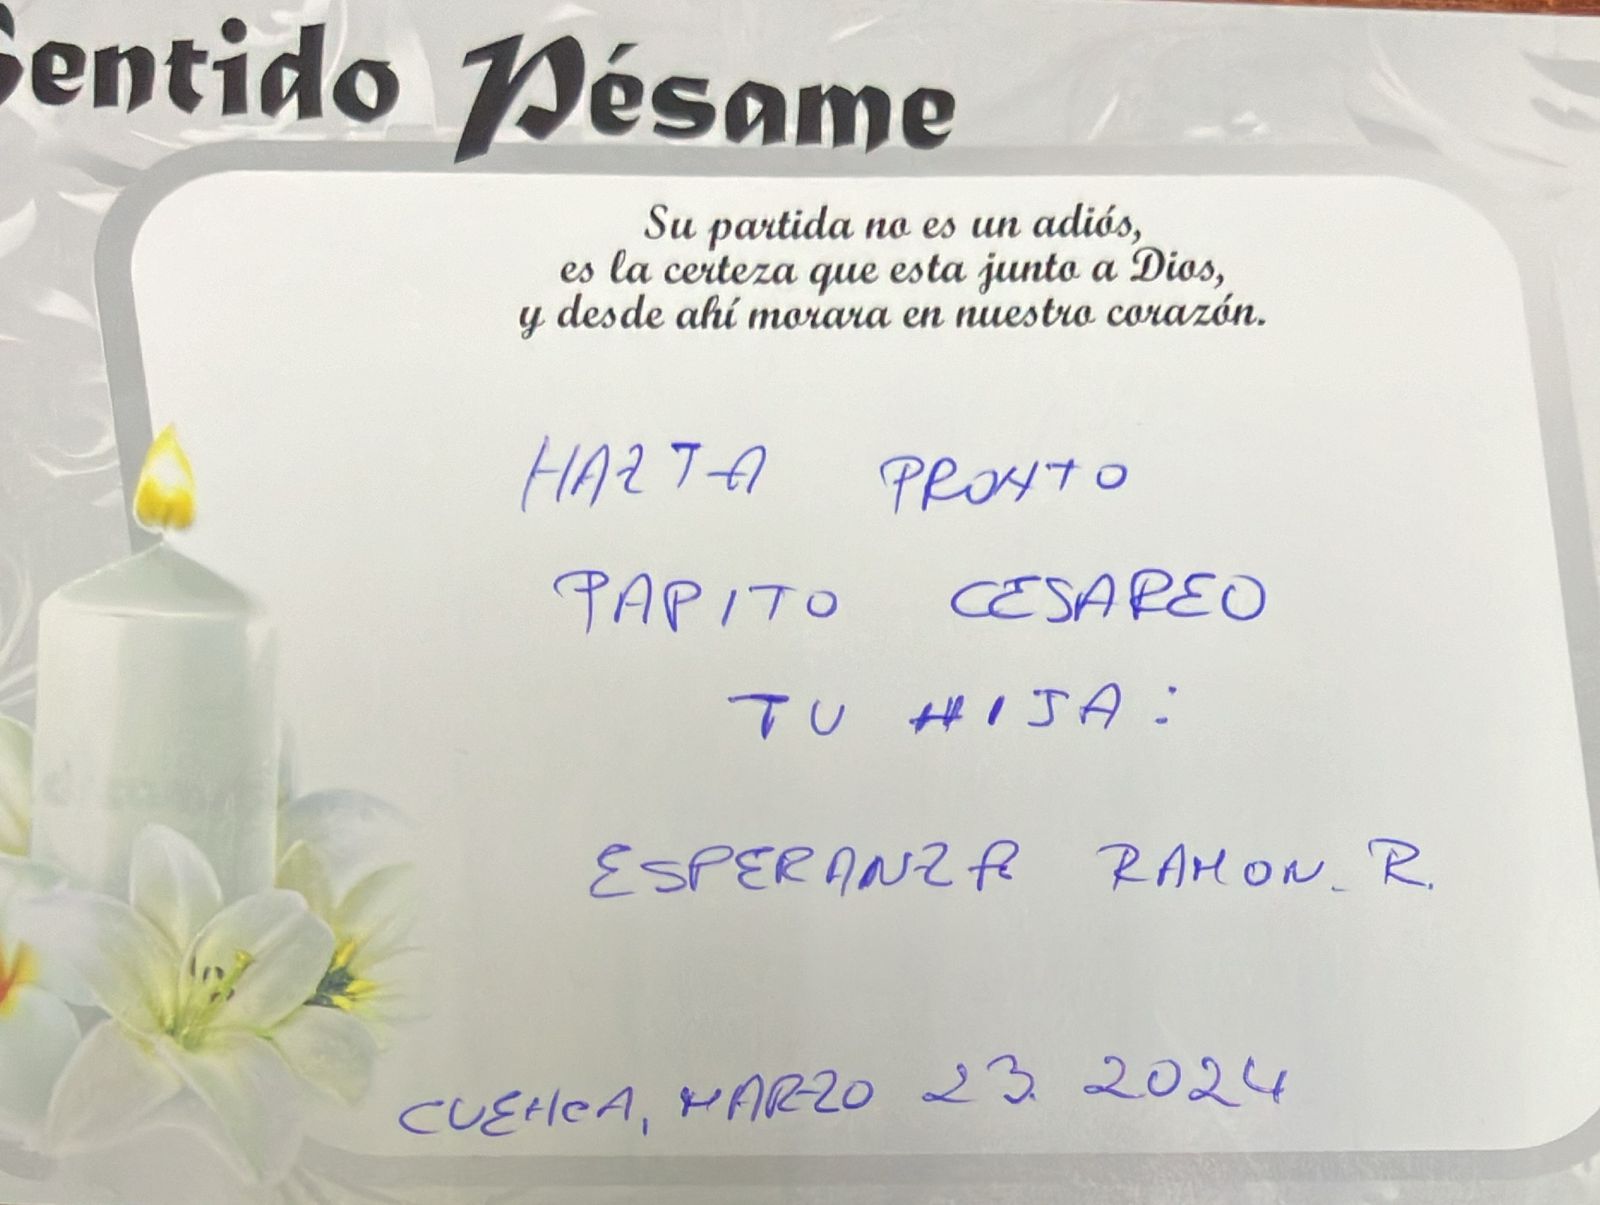 Sentido Pésame
Su partida no es un adiós,
es la certeza que esta junto a Dios,
y desde ahí morara en nuestro corazón.
HAZTA PRONTO
PAPITO CESAREO
TU HIJA:
ESPERANZA RAMON. R.
CUENCA, MARZO 23. 2024